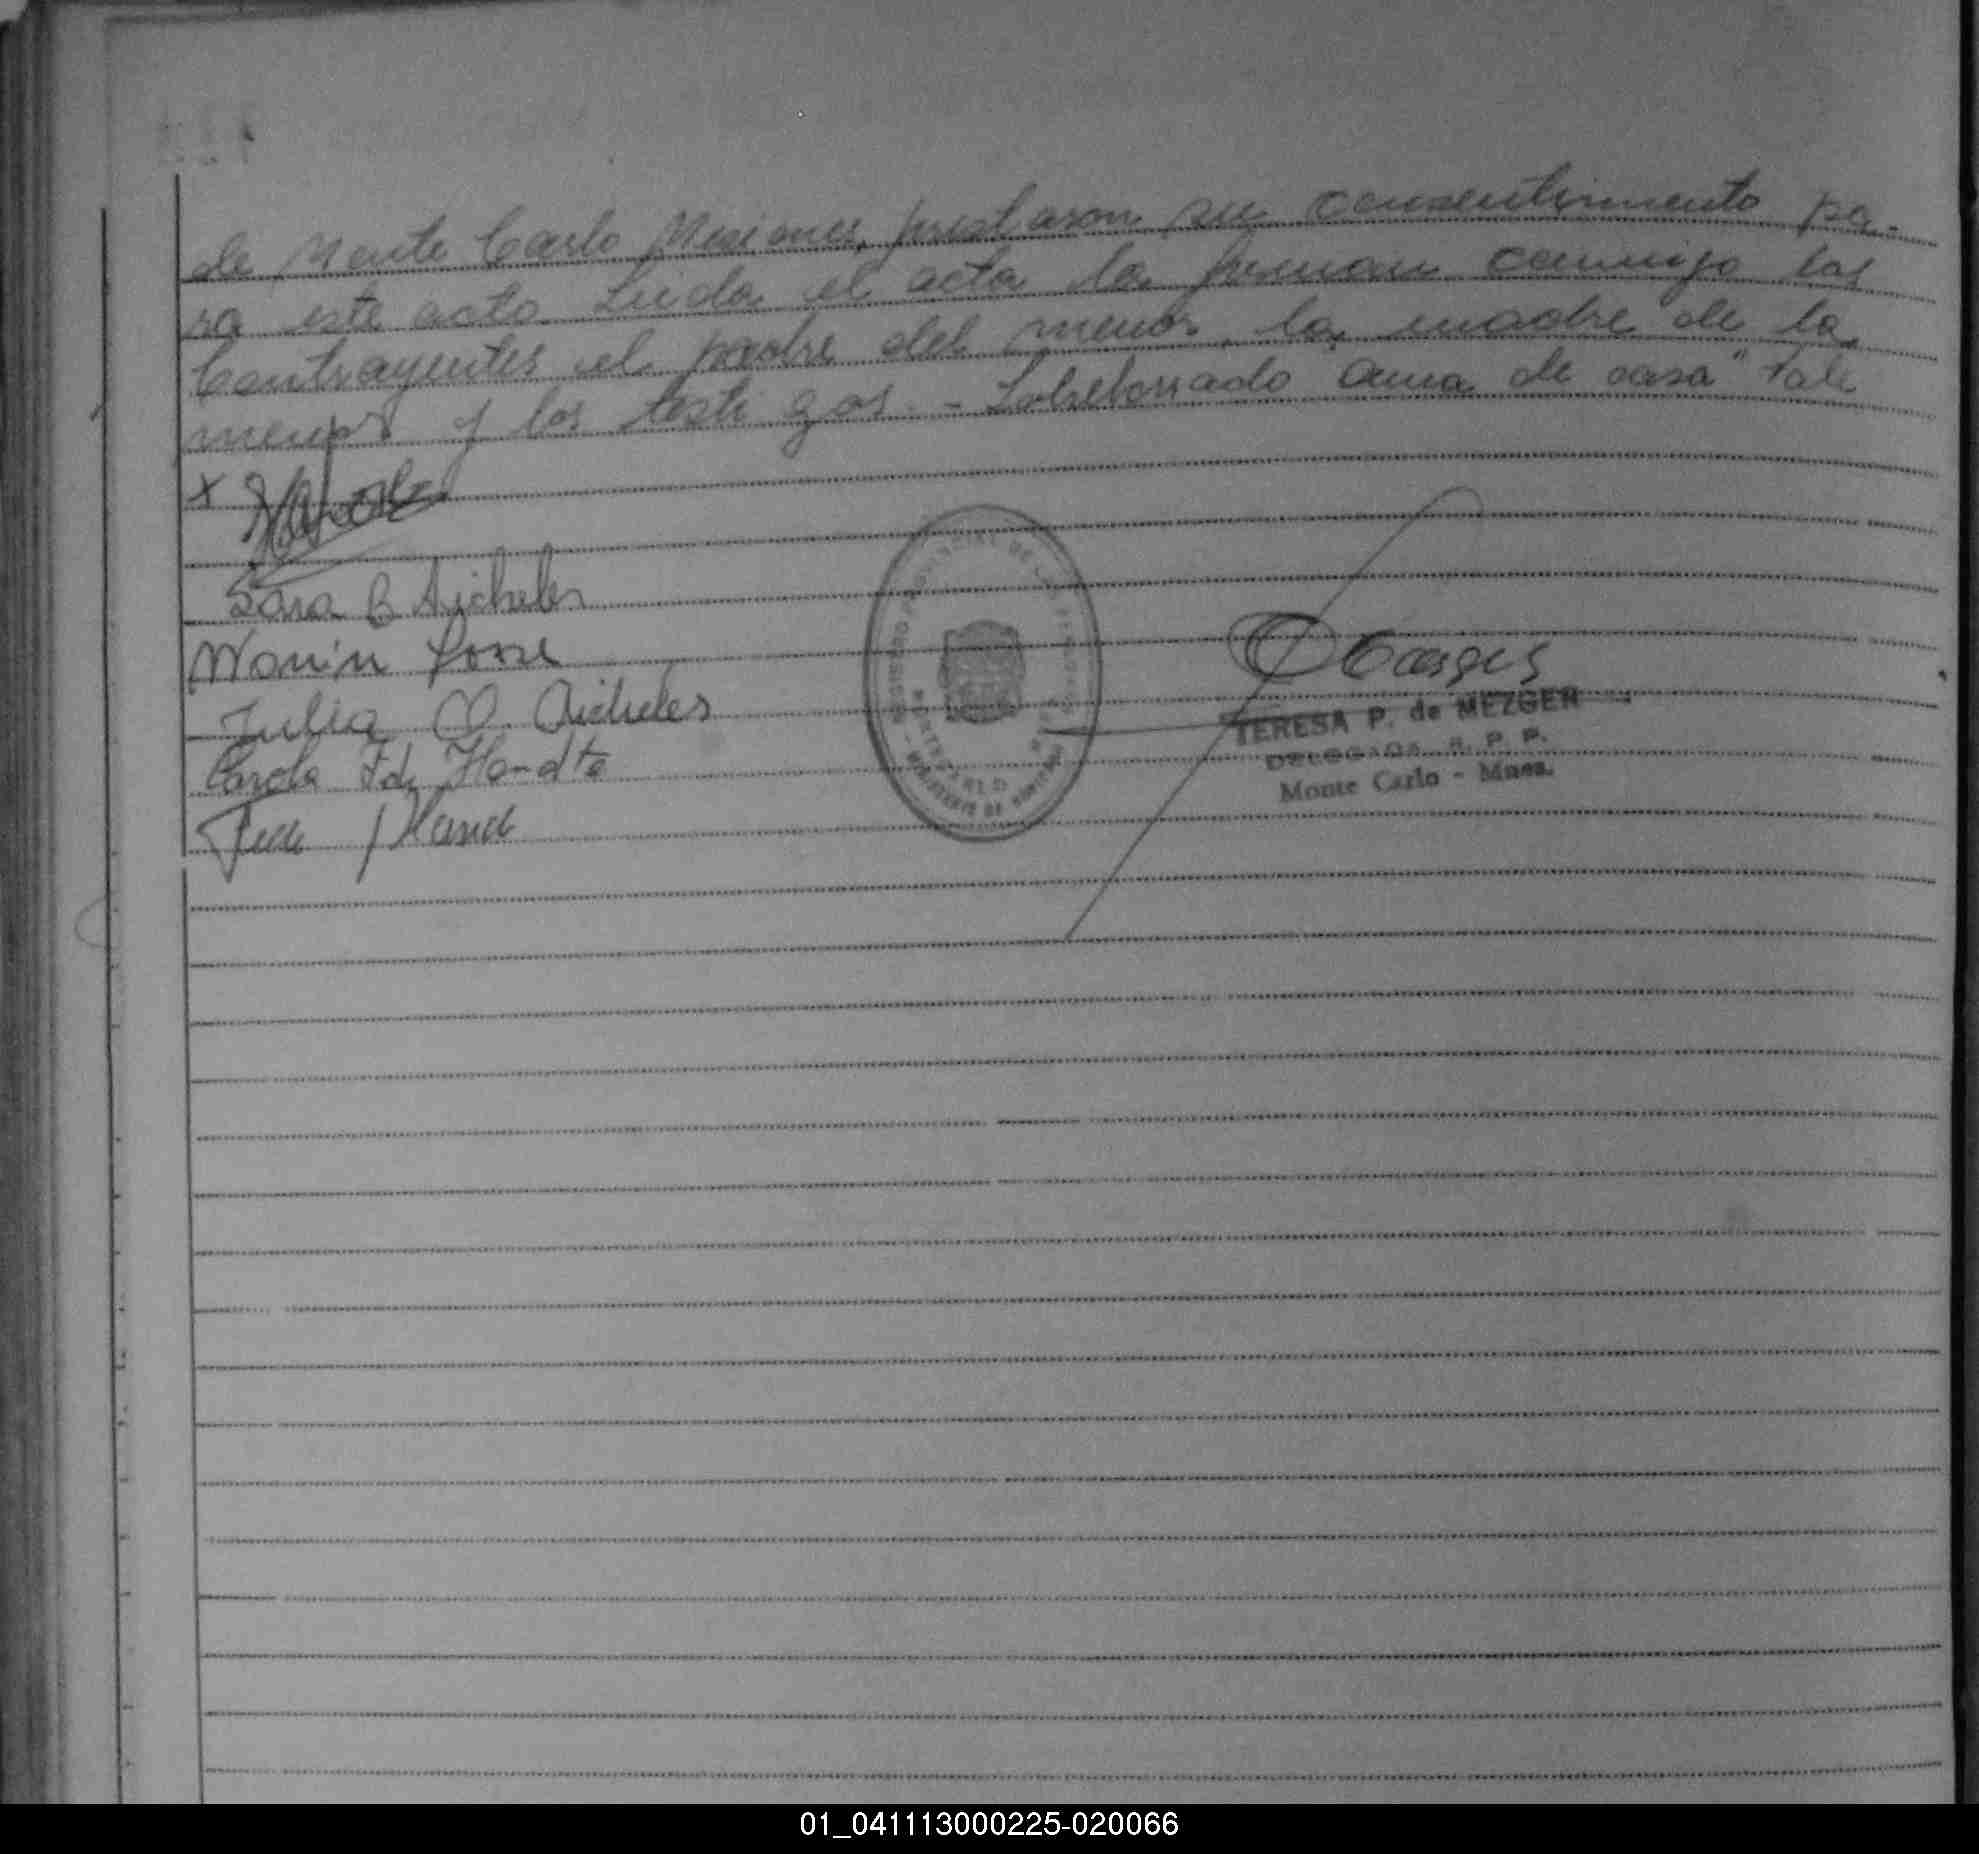 de Monte Carlo Misiones, prestaron su consentimiento pa-
ra este acto. Leida el acta la firman conmigo los
Contrayentes el padre del menor, la madre de la
menor y los testigos. - Sobreborrado "ama de casa" Vale
x
Sara B Aicheler
Julia O. Aicheler
Carola F. de Hardt
TERESA P. de MEZGER
DELEGADA R. P. P.
Monte Carlo - Mnes.
01_041113000225-020066